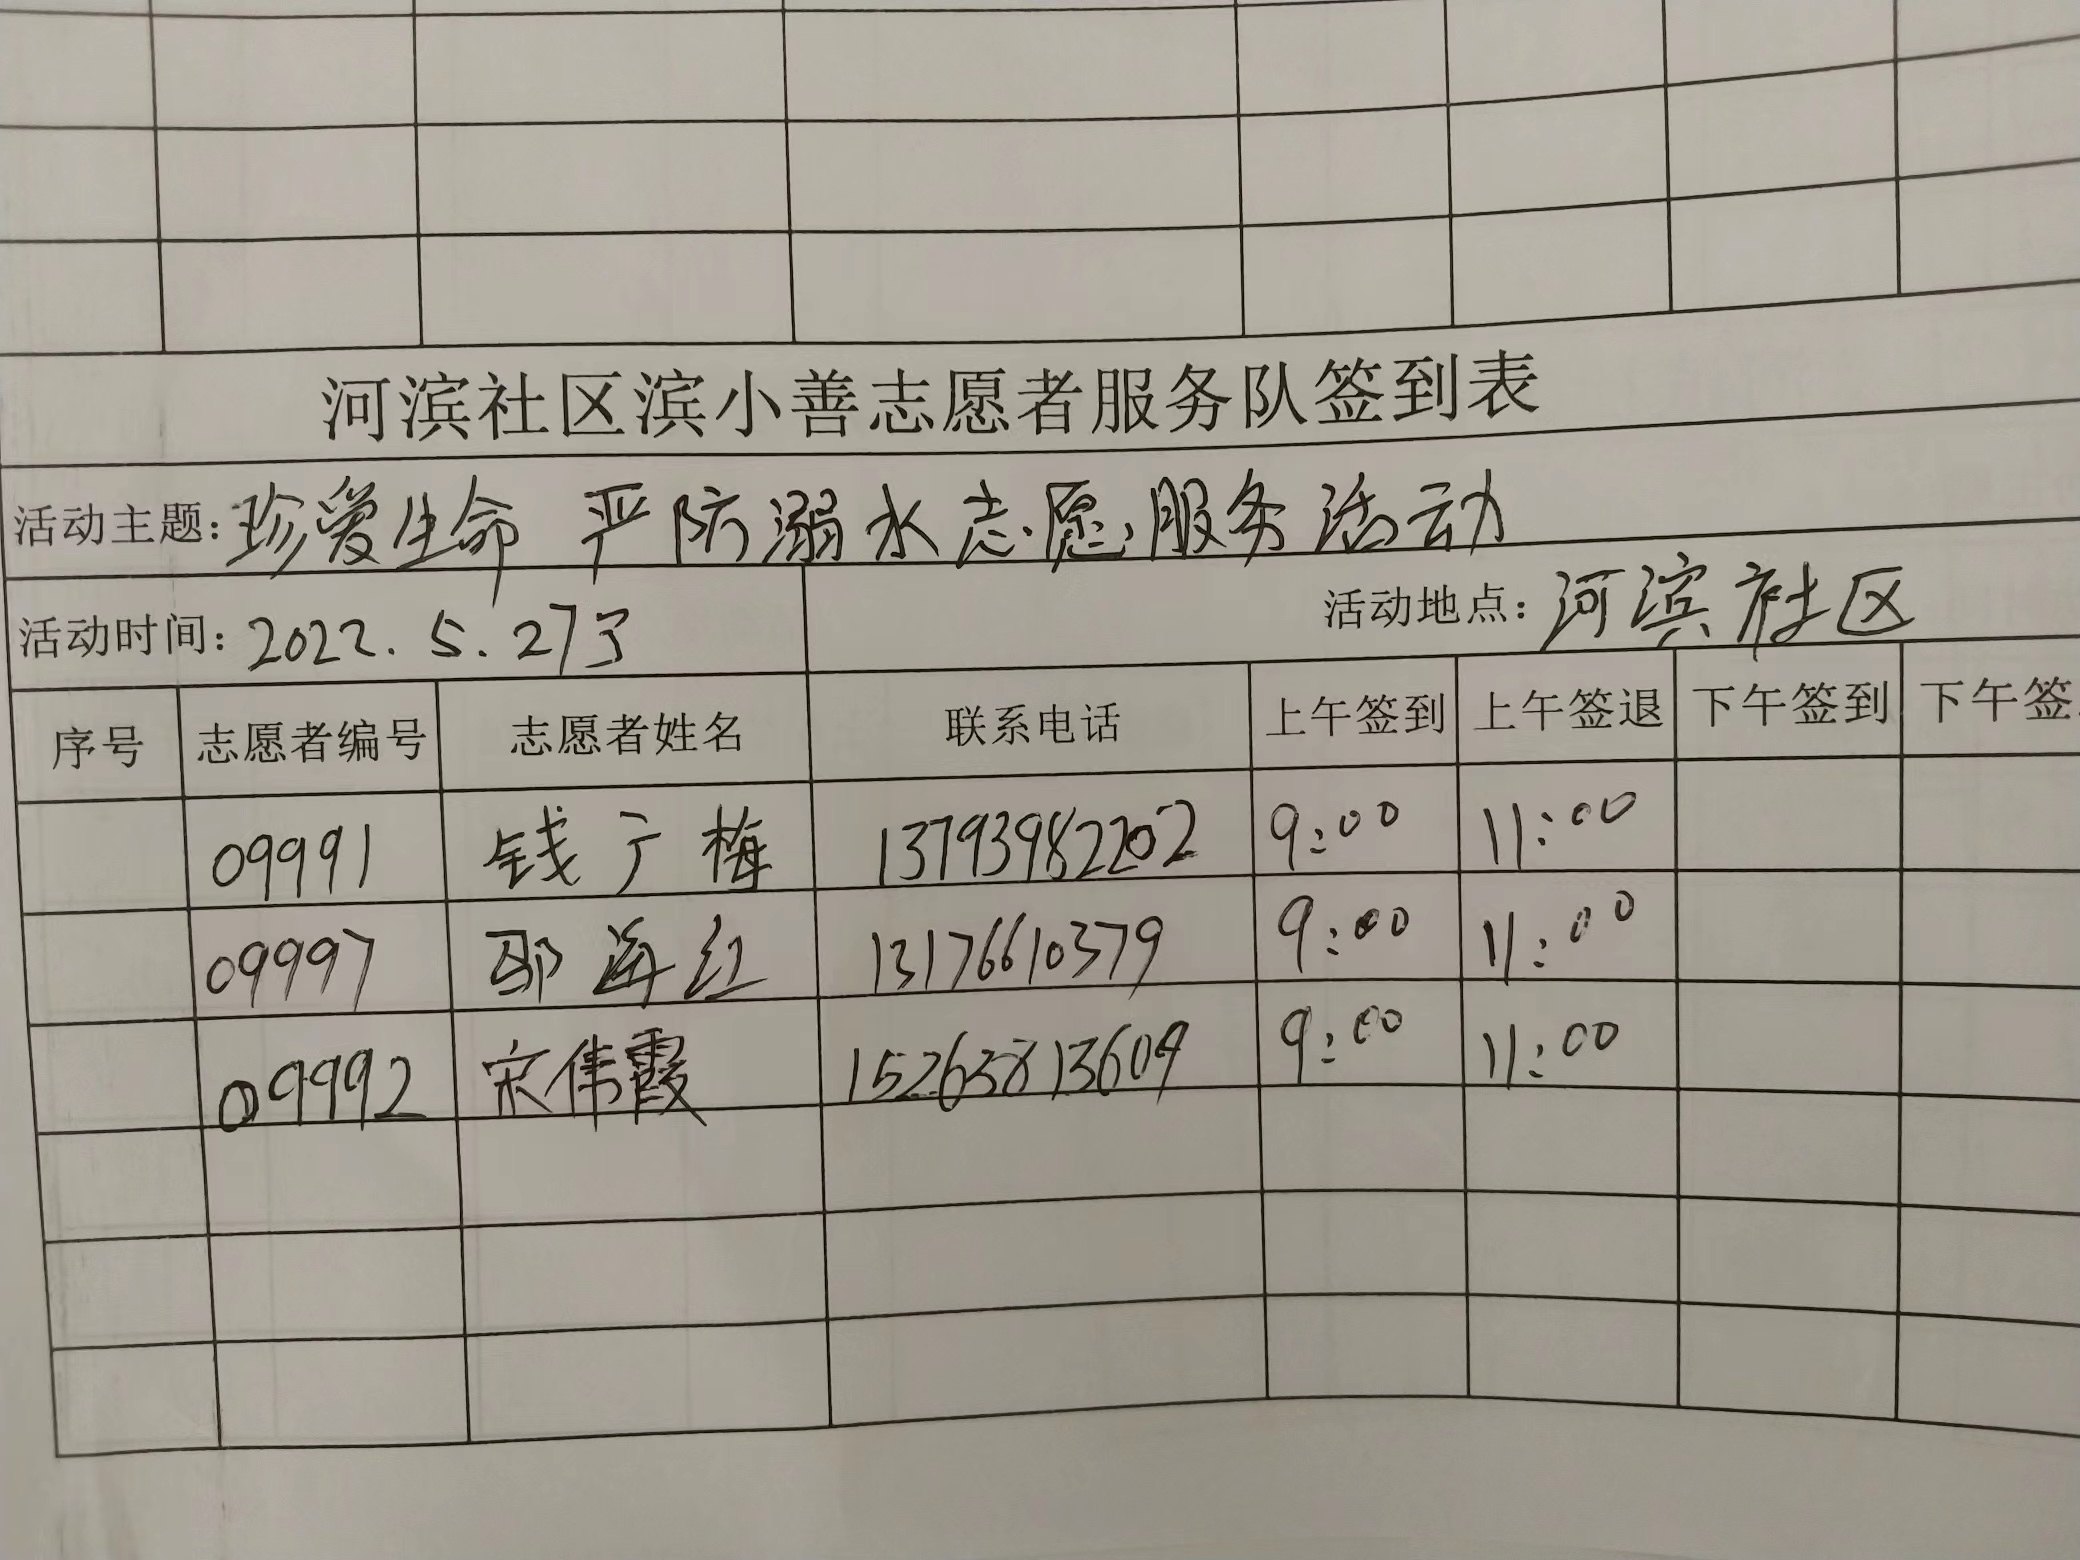 河滨社区滨小善志愿者服务队签到表
活动主题: 珍爱生命 严防溺水志愿服务活动
活动时间: 2022.5.27 活动地点: 河滨社区
序号 志愿者编号 志愿者姓名 联系电话 上午签到 上午签退 下午签到 下午签
09991 钱广梅 13793982202 9:00 11:00
09997 邵海红 13176610379 9:00 11:00
09992 宋伟霞 15263813609 9:00 11:00